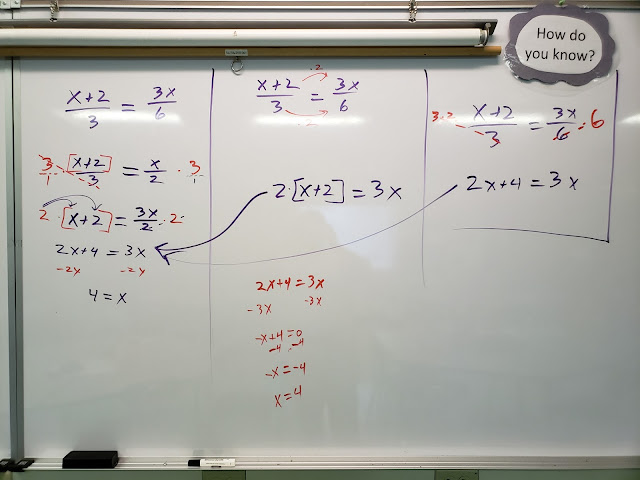 How do
you know?
x+2/3 = 3x/6
3/1 · [x+2]/3 = x/2 · 3/1
2 · [x+2] = 3x/2 · 2
2x+4 = 3x
-2x -2x
4 = x
·2
x+2/3 = 3x/6
·2
2·[x+2] = 3x
2x+4 = 3x
-3x -3x
-x+4 = 0
-4 -4
-x = -4
x = 4
3·2 · x+2/3 = 3x/6 · 6
2x+4 = 3x